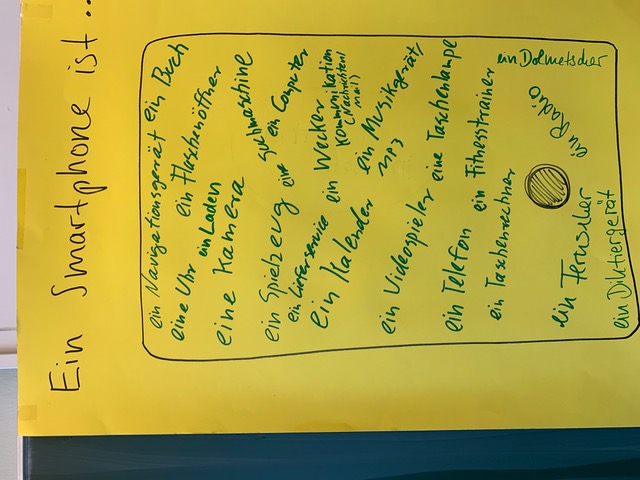 Ein Smartphone ist...
ein Navigationsgerät ein Buch
eine Uhr ein Flaschenöffner
ein Laden
eine Kamera eine Suchmaschine
ein Spielzeug ein Computer
ein Lieferservice ein Wecker Kommunikation
(Nachrichten/
mails)
ein Kalender ein Musikgerät/
MP3
ein Videospieler eine Taschenlampe
ein Telefon ein Fitnesstrainer
ein Taschenrechner ein Dolmetscher
ein Fernseher ein Radio
ein Diktiergerät